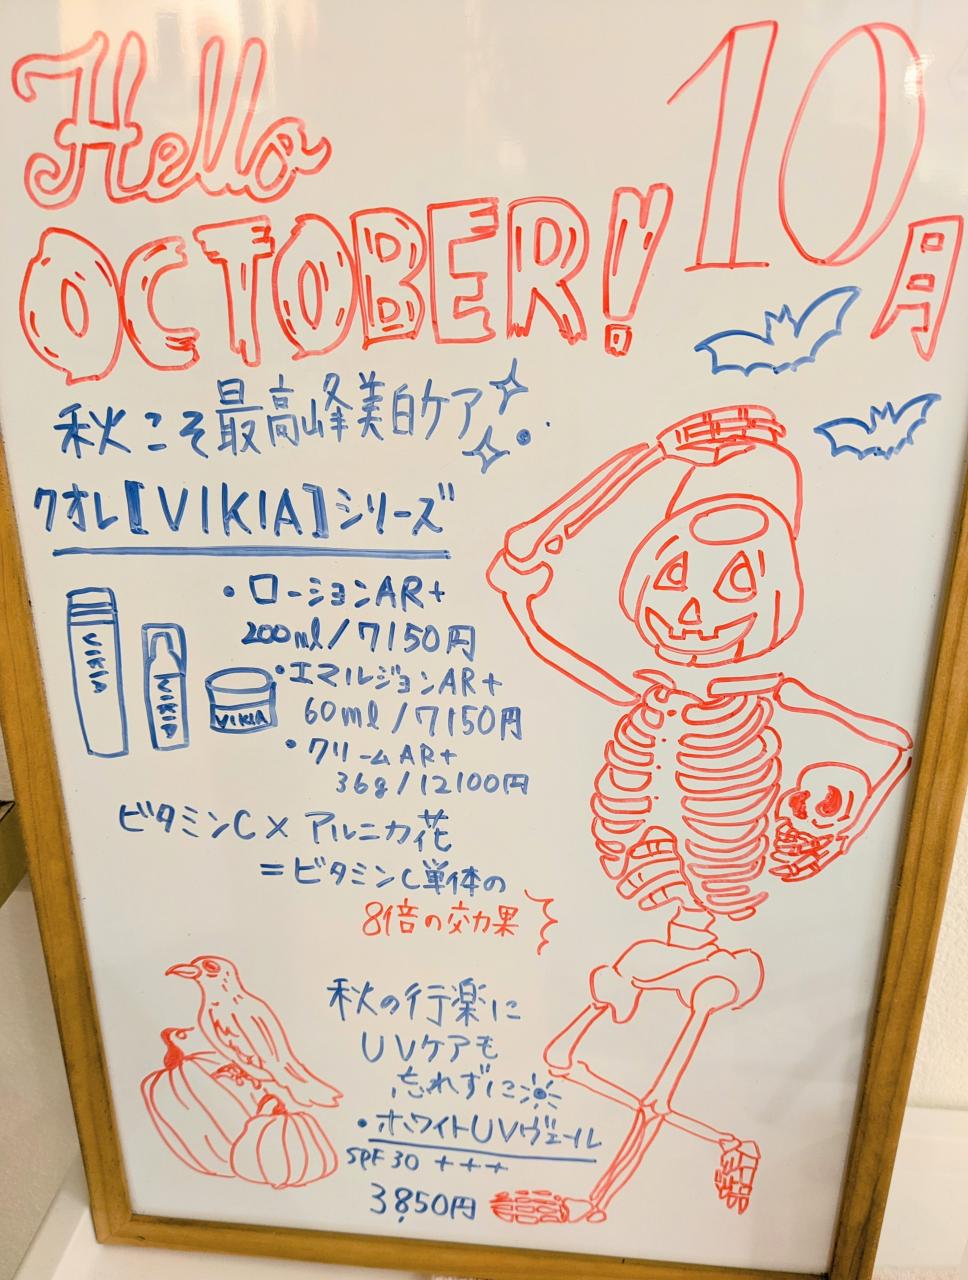 Hello
OCTOBER!
10月
秋こそ最高峰美白ケア
クオレ【VIKIA】シリーズ
・ローションAR+
200ml/7150円
・エマルジョンAR+
60ml/7150円
・クリームAR+
36g/12100円
VIKIA
VIKIA
VIKIA
ビタミンC×アルニカ花
=ビタミンC単体の
81倍の効果
秋の行楽に
UVケアも
忘れずに
・ホワイトUVヴェール
SPF30 +++
3,850円